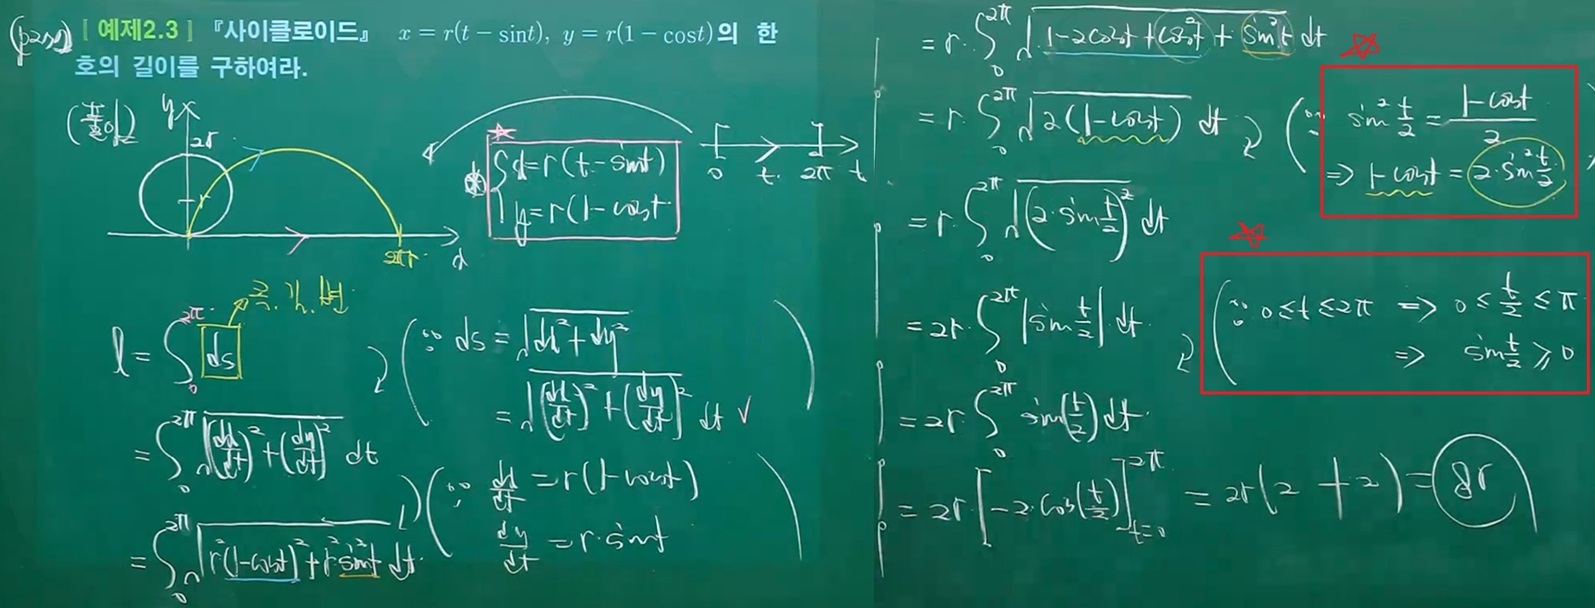 [ 예제2.3 ] 『사이클로이드』 x = r(t − sint), y = r(1 − cost)의 한
호의 길이를 구하여라.
(풀이)
y
2r
r
2πr
x
x=r(t-sint)
y=r(1-cost
0 t 2π t
l = ∫₀^{2π} ds
(∵ ds = √(dx²+dy²)
= √((dx/dt)²+(dy/dt)²) dt ✓ )
= ∫₀^{2π} √((dx/dt)²+(dy/dt)²) dt
(∵ dx/dt = r(1-cost)
dy/dt = r·sint )
= ∫₀^{2π} √(r²(1-cost)²+r²sin²t) dt
= r·∫₀^{2π} √(1-2cost+cos²t+sin²t) dt
= r·∫₀^{2π} √(2(1-cost)) dt
(∵ sin²(t/2) = (1-cost)/2
⇒ 1-cost = 2·sin²(t/2) )
= r·∫₀^{2π} √((2·sin(t/2))²) dt
= 2r·∫₀^{2π} |sin(t/2)| dt
(∵ 0≤t≤2π ⇒ 0≤t/2≤π
⇒ sin(t/2)≥0
= 2r·∫₀^{2π} sin(t/2) dt
= 2r·[-2·cos(t/2)]_{t=0}^{2π} = 2r(2+2) = 8r